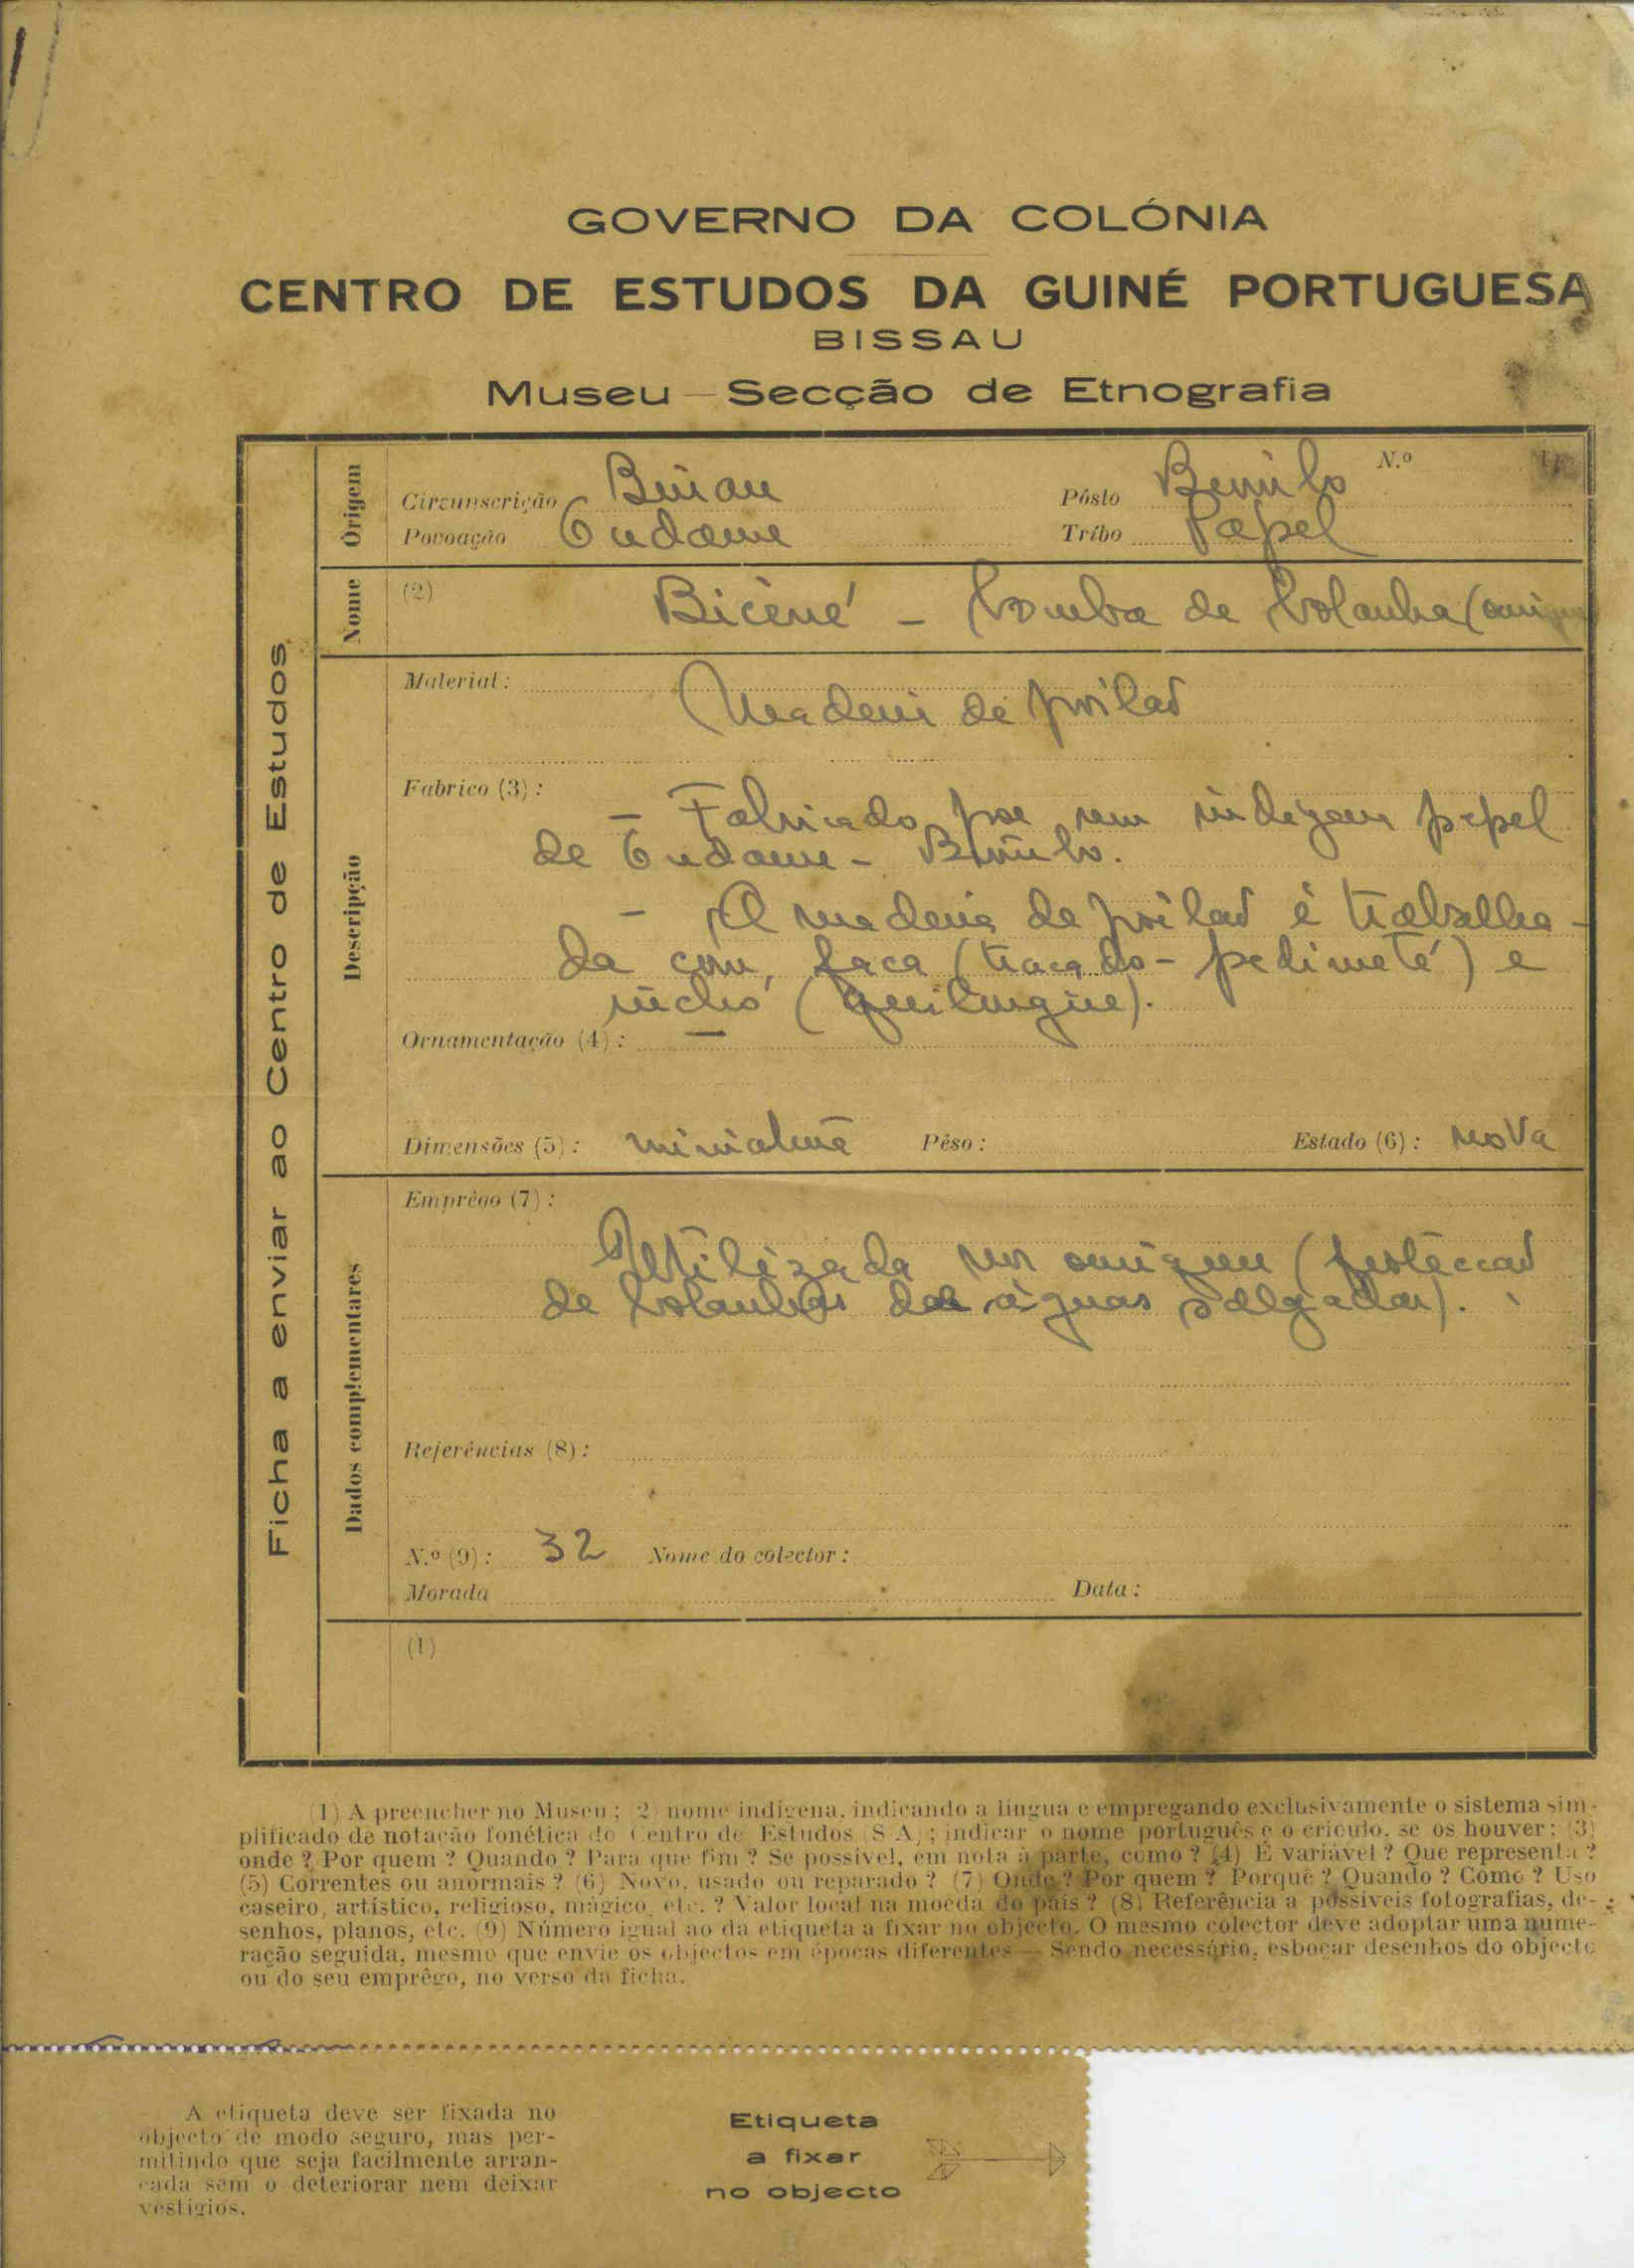 GOVERNO DA COLÓNIA
CENTRO DE ESTUDOS DA GUINÉ PORTUGUESA
BISSAU
Museu — Secção de Etnografia
Ficha a enviar ao Centro de Estudos
Origem
Circunscrição Bissau Pôsto N.º
Povoação Tribo Papel
Nome
(2) Bicêné - Bomba de Bolanha
Descripção
Material: Madeira de poilão
Fabrico (3):
- Fabricado por um indígena papel
de
- A madeira de poilão é trabalha-
da com faca (traçado - pedimeté) e
Ornamentação (4): —
Dimensões (5): miniatura Pêso: Estado (6): nova
Dados complementares
Emprêgo (7):
Utilizada (protecção
de bolanhas das águas salgadas).
Referências (8):
N.º (9): 32 Nome do colector:
Morada Data:
(1)
(1) A preencher no Museu; (2) nome indígena, indicando a língua e empregando exclusivamente o sistema sim-
plificado de notação fonética do Centro de Estudos (S A); indicar o nome português e o crioulo, se os houver; (3)
onde? Por quem? Quando? Para que fim? Se possível, em nota à parte, como? (4) É variável? Que representa?
(5) Correntes ou anormais? (6) Novo, usado ou reparado? (7) Onde? Por quem? Porquê? Quando? Como? Uso
caseiro, artístico, religioso, mágico, etc.? Valor local na moeda do país? (8) Referência a possíveis fotografias, de-
senhos, planos, etc. (9) Número igual ao da etiqueta a fixar no objecto. O mesmo colector deve adoptar uma nume-
ração seguida, mesmo que envie os objectos em épocas diferentes — Sendo necessário, esboçar desenhos do objecto
ou do seu emprêgo, no verso da ficha.
A etiqueta deve ser fixada no
objecto de modo seguro, mas per-
mitindo que seja facilmente arran-
cada sem o deteriorar nem deixar
vestígios.
Etiqueta
a fixar
no objecto